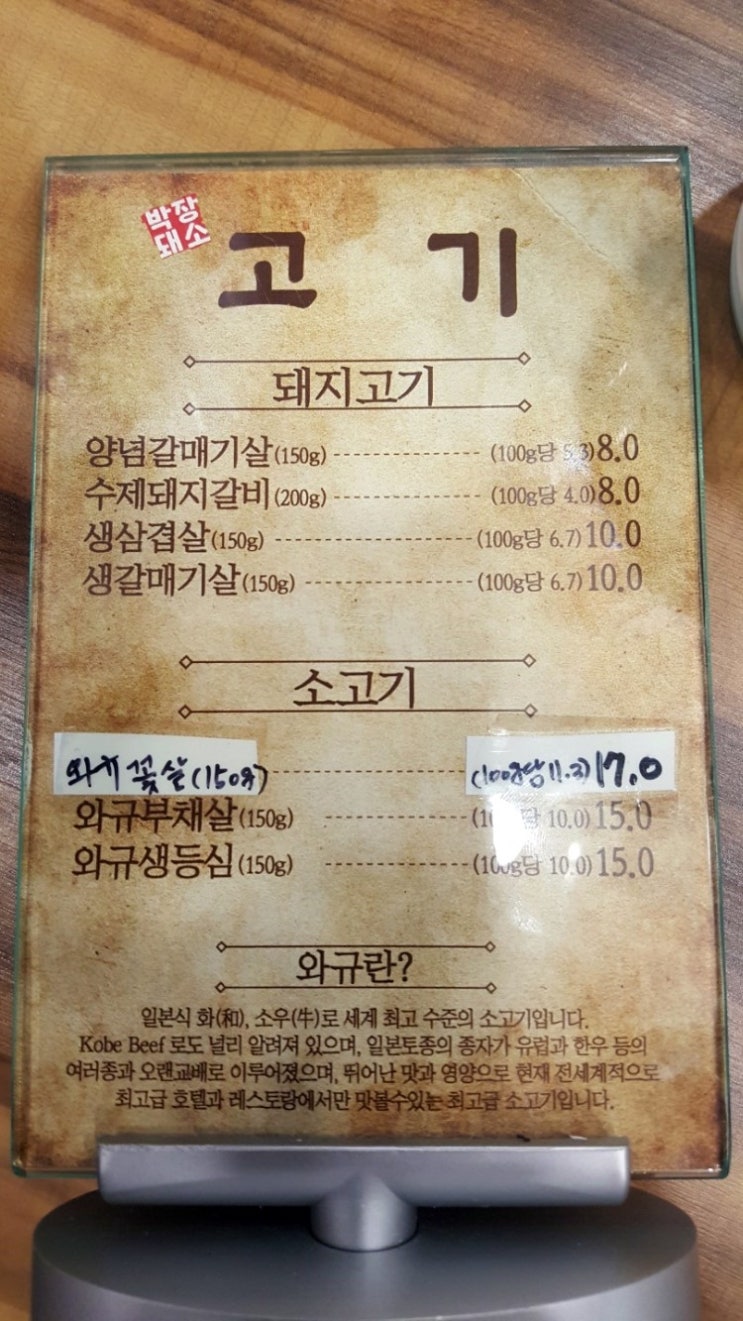 박장
돼소
고 기
돼지고기
양념갈매기살(150g) (100g당 5.3)8.0
수제돼지갈비(200g) (100g당 4.0)8.0
생삼겹살(150g) (100g당 6.7)10.0
생갈매기살(150g) (100g당 6.7)10.0
소고기
와규꽃살(150g) (100g당 11.3)17.0
와규부채살(150g) 10.0)15.0
와규생등심(150g) (100g당 10.0)15.0
와규란?
일본식 화(和), 소우(牛)로 세계 최고 수준의 소고기입니다.
Kobe Beef 로도 널리 알려져 있으며, 일본토종의 종자가 유럽과 한우 등의
여러종과 오랜교배로 이루어졌으며, 뛰어난 맛과 영양으로 현재 전세계적으로
최고급 호텔과 레스토랑에서만 맛볼수있는 최고급 소고기입니다.